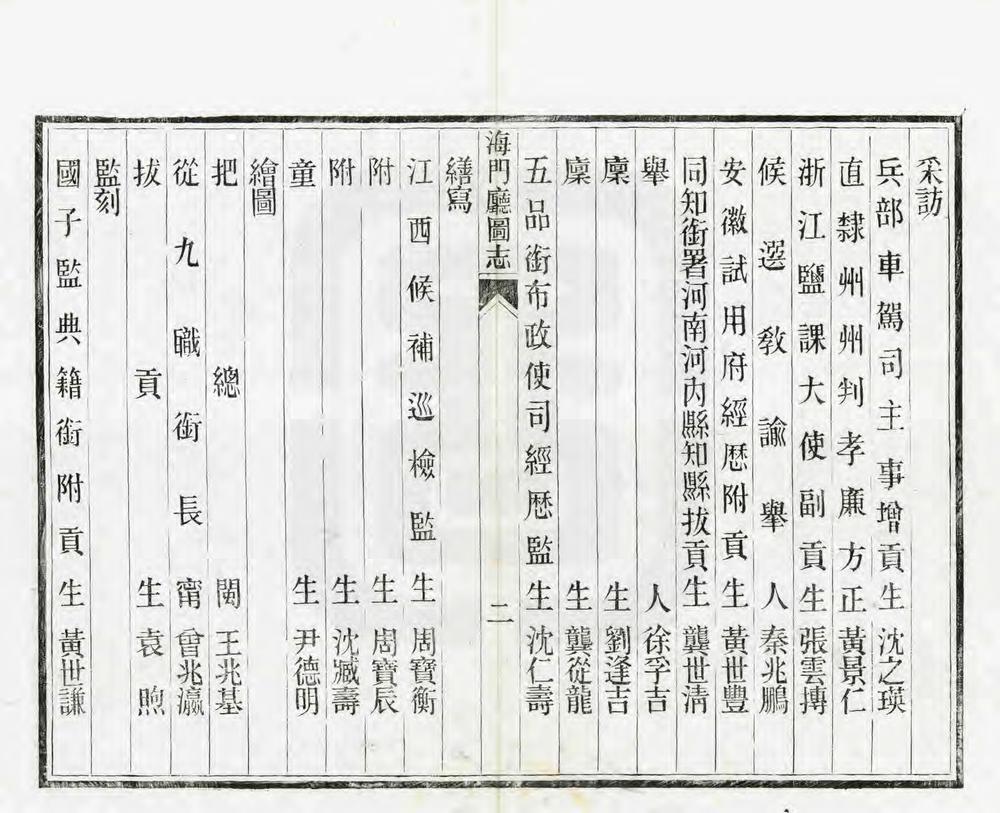 采訪
兵部車駕司主事增貢生沈之瑛
直隸州州判孝廉方正黃景仁
浙江鹽課大使副貢生張雲摶
候選敎諭舉人秦兆鵬
安徽試用府經歷附貢生黃世豐
同知銜署河南河內縣知縣拔貢生龔世淸
舉人徐孚吉
廩生劉逢吉
廩生龔從龍
五品銜布政使司經歷監生沈仁壽
海門廳圖志
二
繕寫
江西候補巡檢監生周寶衡
附生周寶辰
附生沈臧壽
童生尹德明
繪圖
把總閩王兆基
從九職銜長甯曾兆瀛
拔貢生袁煦
監刻
國子監典籍銜附貢生黃世謙